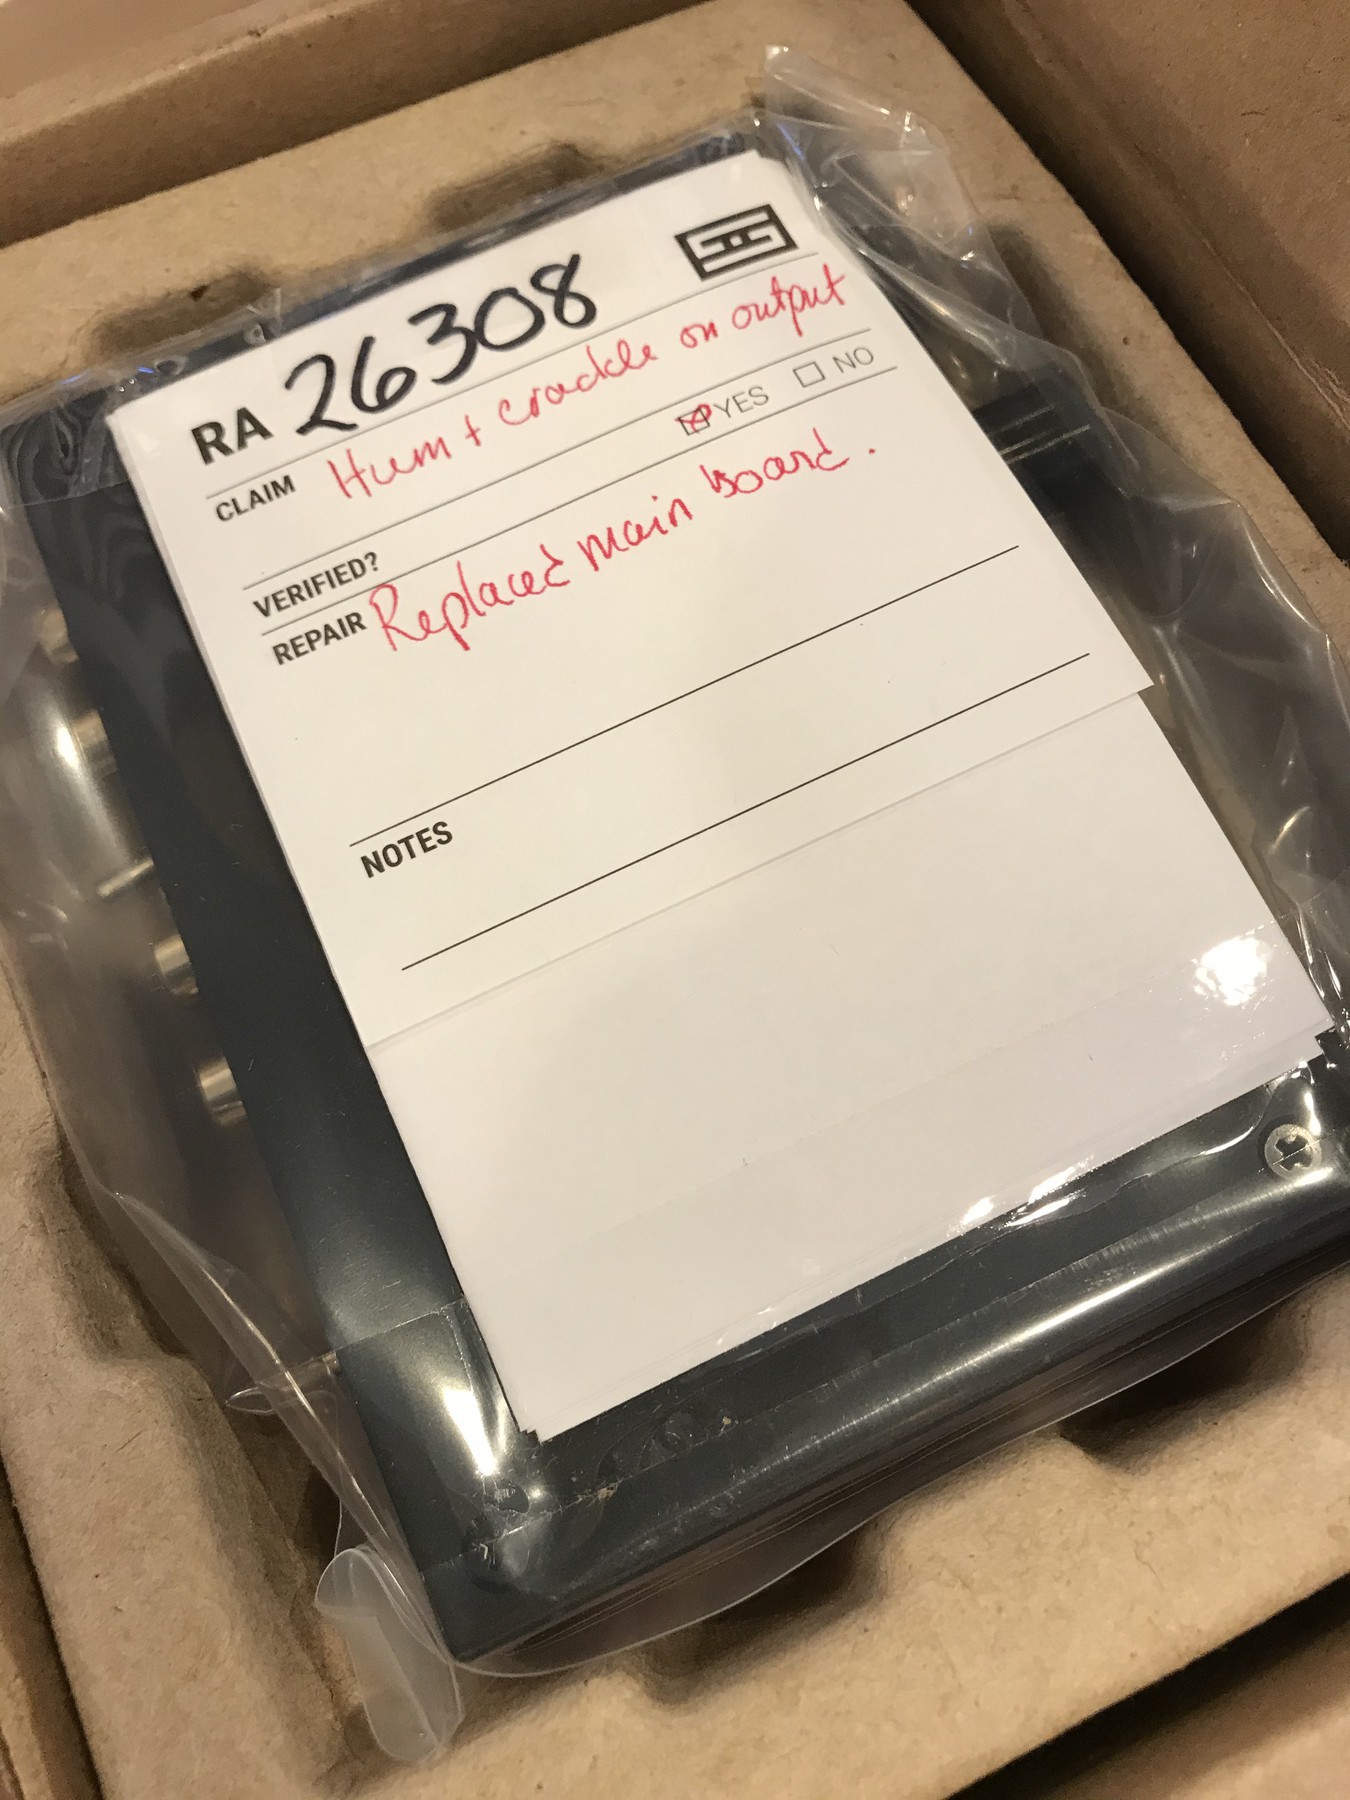 RA 26308
CLAIM Hum + crackle on output
VERIFIED? YES NO
REPAIR Replaced main board.
NOTES